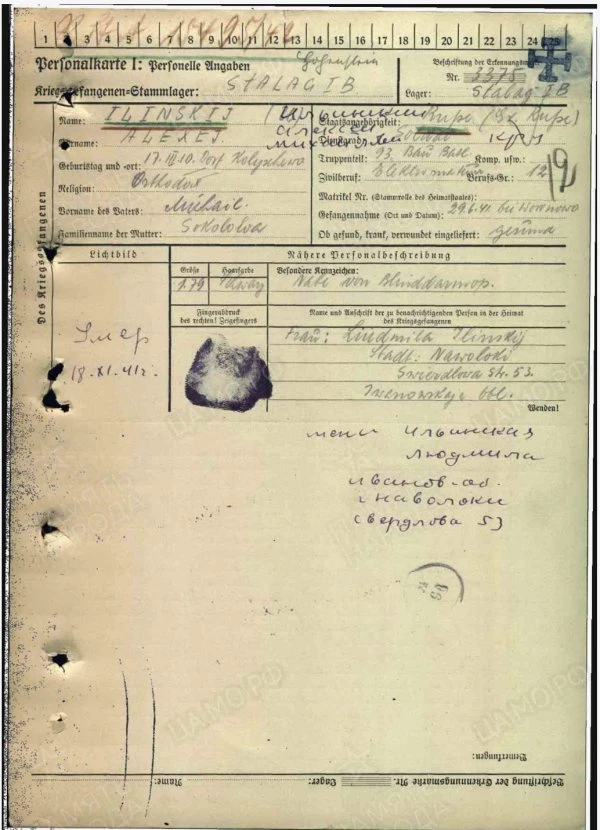 1 2 3 4 5 6 7 8 9 10 11 12 13 14 15 16 17 18 19 20 21 22 23 24 25
Personalkarte I: Personelle Angaben
Hohenstein
Beschriftung der Erkennungsmarke
Nr. 3375
Kriegsgefangenen-Stammlager: STALAG IB
Lager: Stalag IB
Des Kriegsgefangenen
Name: ILINSKIJ
Ильинский
Staatsangehörigkeit: Russe
Vorname: ALEXEJ
Алексей
Михайл
Dienstgrad: Soldat
Geburtstag und -ort: 17.III.10. Dorf
Truppenteil: 93. Bau Batl. Komp. usw.:
Religion: Orthodox
Zivilberuf: Berufs-Gr.: 12
Vorname des Vaters: Michail.
Matrikel Nr. (Stammrolle des Heimatstaates):
Gefangennahme (Ort und Datum): 29.6.41 bei
Familienname der Mutter: Sokolowa
Ob gesund, krank, verwundet eingeliefert: gesund
Lichtbild
Nähere Personalbeschreibung
Größe
Haarfarbe
Besondere Kennzeichen:
1.79
Schwarz
Naht von Blinddarmop.
Fingerabdruck
des rechten! Zeigefingers
Name und Anschrift der zu benachrichtigenden Person in der Heimat
des Kriegsgefangenen
Frau: Ludmila Ilinskij
Stadt: Nawoloki
Swierdlowa Str. 53.
Iwanowskaja Obl.
Wenden!
Умер
18.XI.41г.
жена Ильинская
Людмила
Иванов-об.
г Наволоки
Свердлова 53
Bemerkungen:
Beschriftung der Erkennungsmarke Nr.
Lager:
Name:
ЦАМО РФ